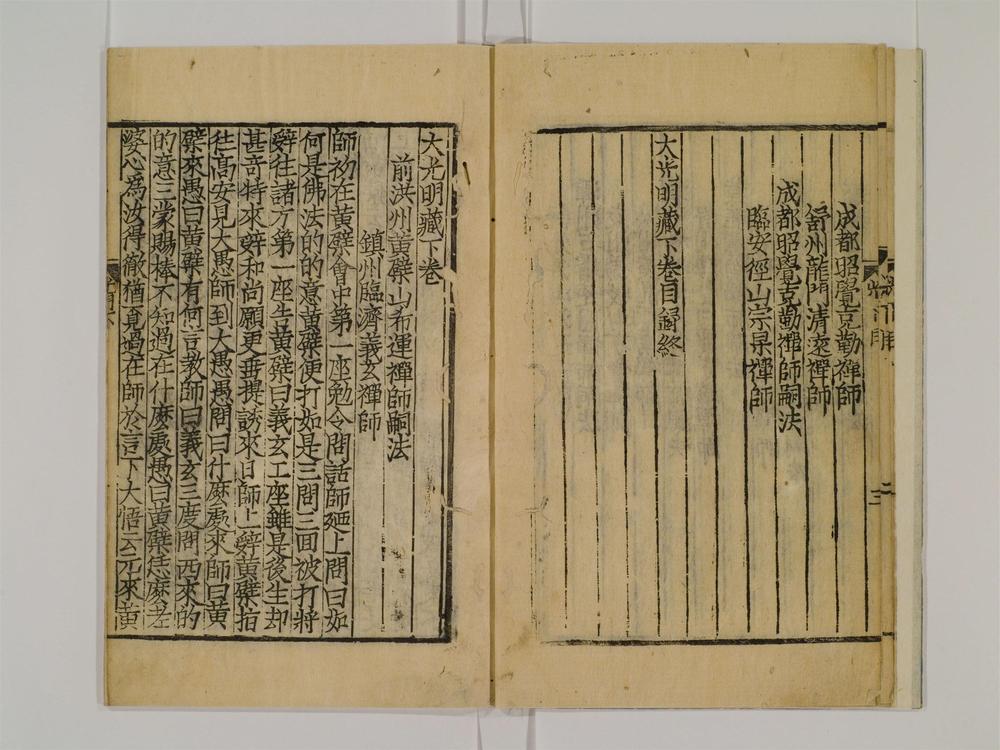 成都昭覺克勤禅師
舒州龍門清遠禪師
成都昭覺克勤禪師嗣法
臨安徑山宗杲禪師
大光明藏下卷目録終
大光明藏下卷
前洪州黄檗山布運禪師嗣法
鎮州臨濟義玄禪師
師初在黄檗會中第一座勉令問話師廼上問曰如
何是佛法的的意黄檗便打如是三問三回被打將
辞往諸方第一座告黄檗曰義玄上座雖是後生却
甚奇特來辞和尚願更垂提誘來日師上辞黄檗指
徃高安見大愚師到大愚愚問曰什麽處來師曰黄
檗來愚曰黄檗有何言教師曰義玄三度問西來的
的意三蒙賜棒不知過在什麽處愚曰黄檗恁麽老
婆心為汝得徹猶覔過在師於言下大悟云元來黄